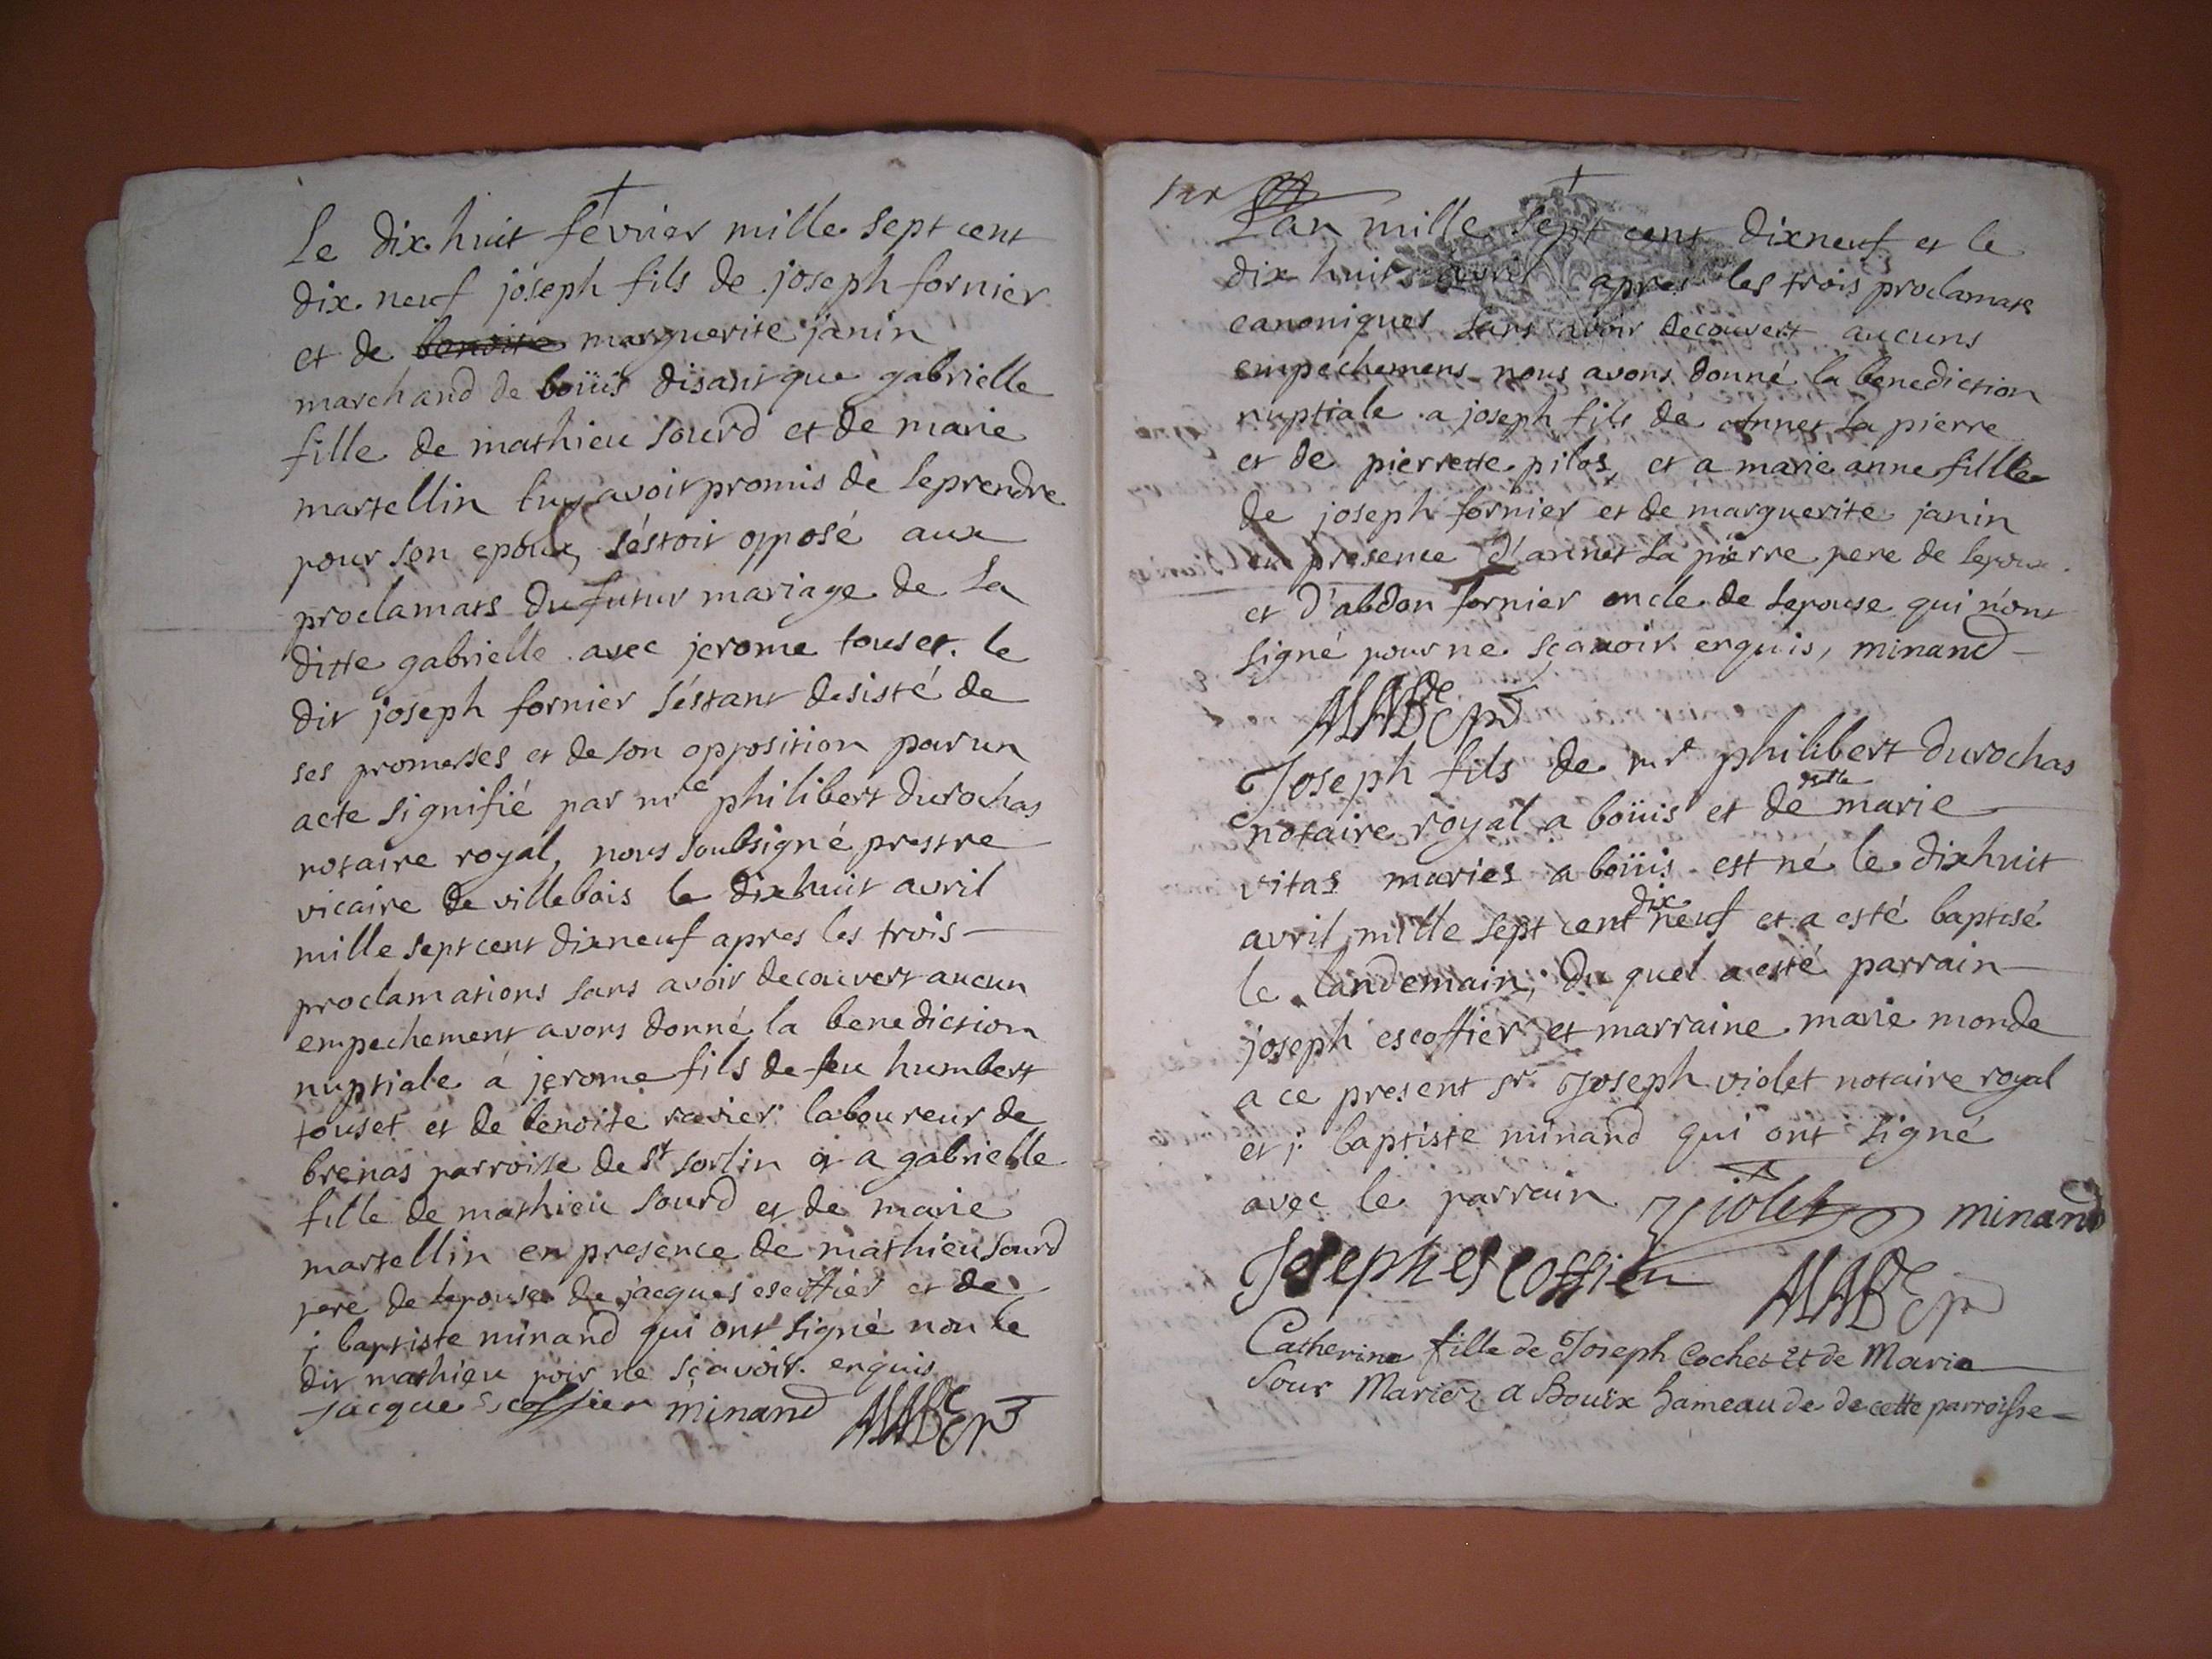 Le dix huit février mille sept cent
dix neuf joseph fils de joseph fornier
et de benoite marguerite janin
marchand de boüis disant que gabrielle
fille de mathieu sourd et de marie
martellin luy avoit promis de leprendre
pour son epoux, s'éstoit opposé aux
proclamats du futur mariage de la
ditte gabrielle avec jerome touset. le
dit joseph fornier s'éstant desisté de
ses promesses et de son opposition par un
acte signifié par mre philibert durochas
notaire royal, nous soubsigné prestre
vicaire de villebois le dixhuit avril
mille sept cent dixneuf apres les trois
proclamations sans avoir decouvert aucun
empechement avons donné la benediction
nuptiale á jerome fils de feu humbert
touset et de benoite ravier laboureur de
brenas parroisse de st sorlin et a gabrielle
fille de mathieu sourd et de marie
martellin en presence de mathieu sourd
pere de lepouse de jacques escoffier et de
j baptiste minand qui ont signé non le
dit mathieu pour ne sçavoir enquis
Jacque escoffier minand
L'an mille sept cent dixneuf et le
dix huit avril apres les trois proclamats
canoniques sans avoir decouvert aucuns
empechemens nous avons donné la benediction
nuptiale a joseph fils de Annet la pierre
et de pierrette pilos, et a marie anne fille
de joseph fornier et de marguerite janin
en presence d'annet la pierre pere de lepoux
et d'abdon fornier oncle de lepouse qui n'ont
signé pour ne sçavoir enquis, minand
Joseph fils de mr philibert durochas
notaire royal a boüis et de delle marie
vitas mariés a boüis est né le dixhuit
avril mille sept cent dix neuf et a esté baptisé
le landemain, du quel a esté parrain
joseph escoffier et marraine marie monde
a ce present sr. Joseph violet notaire royal
et j. baptiste minand qui ont signé
avec le parrain Violet minand
Joseph escoffier
Catherine fille de Joseph Cochet et de Marie
Sour Mariez a Bouix hameau de de cette parroisse